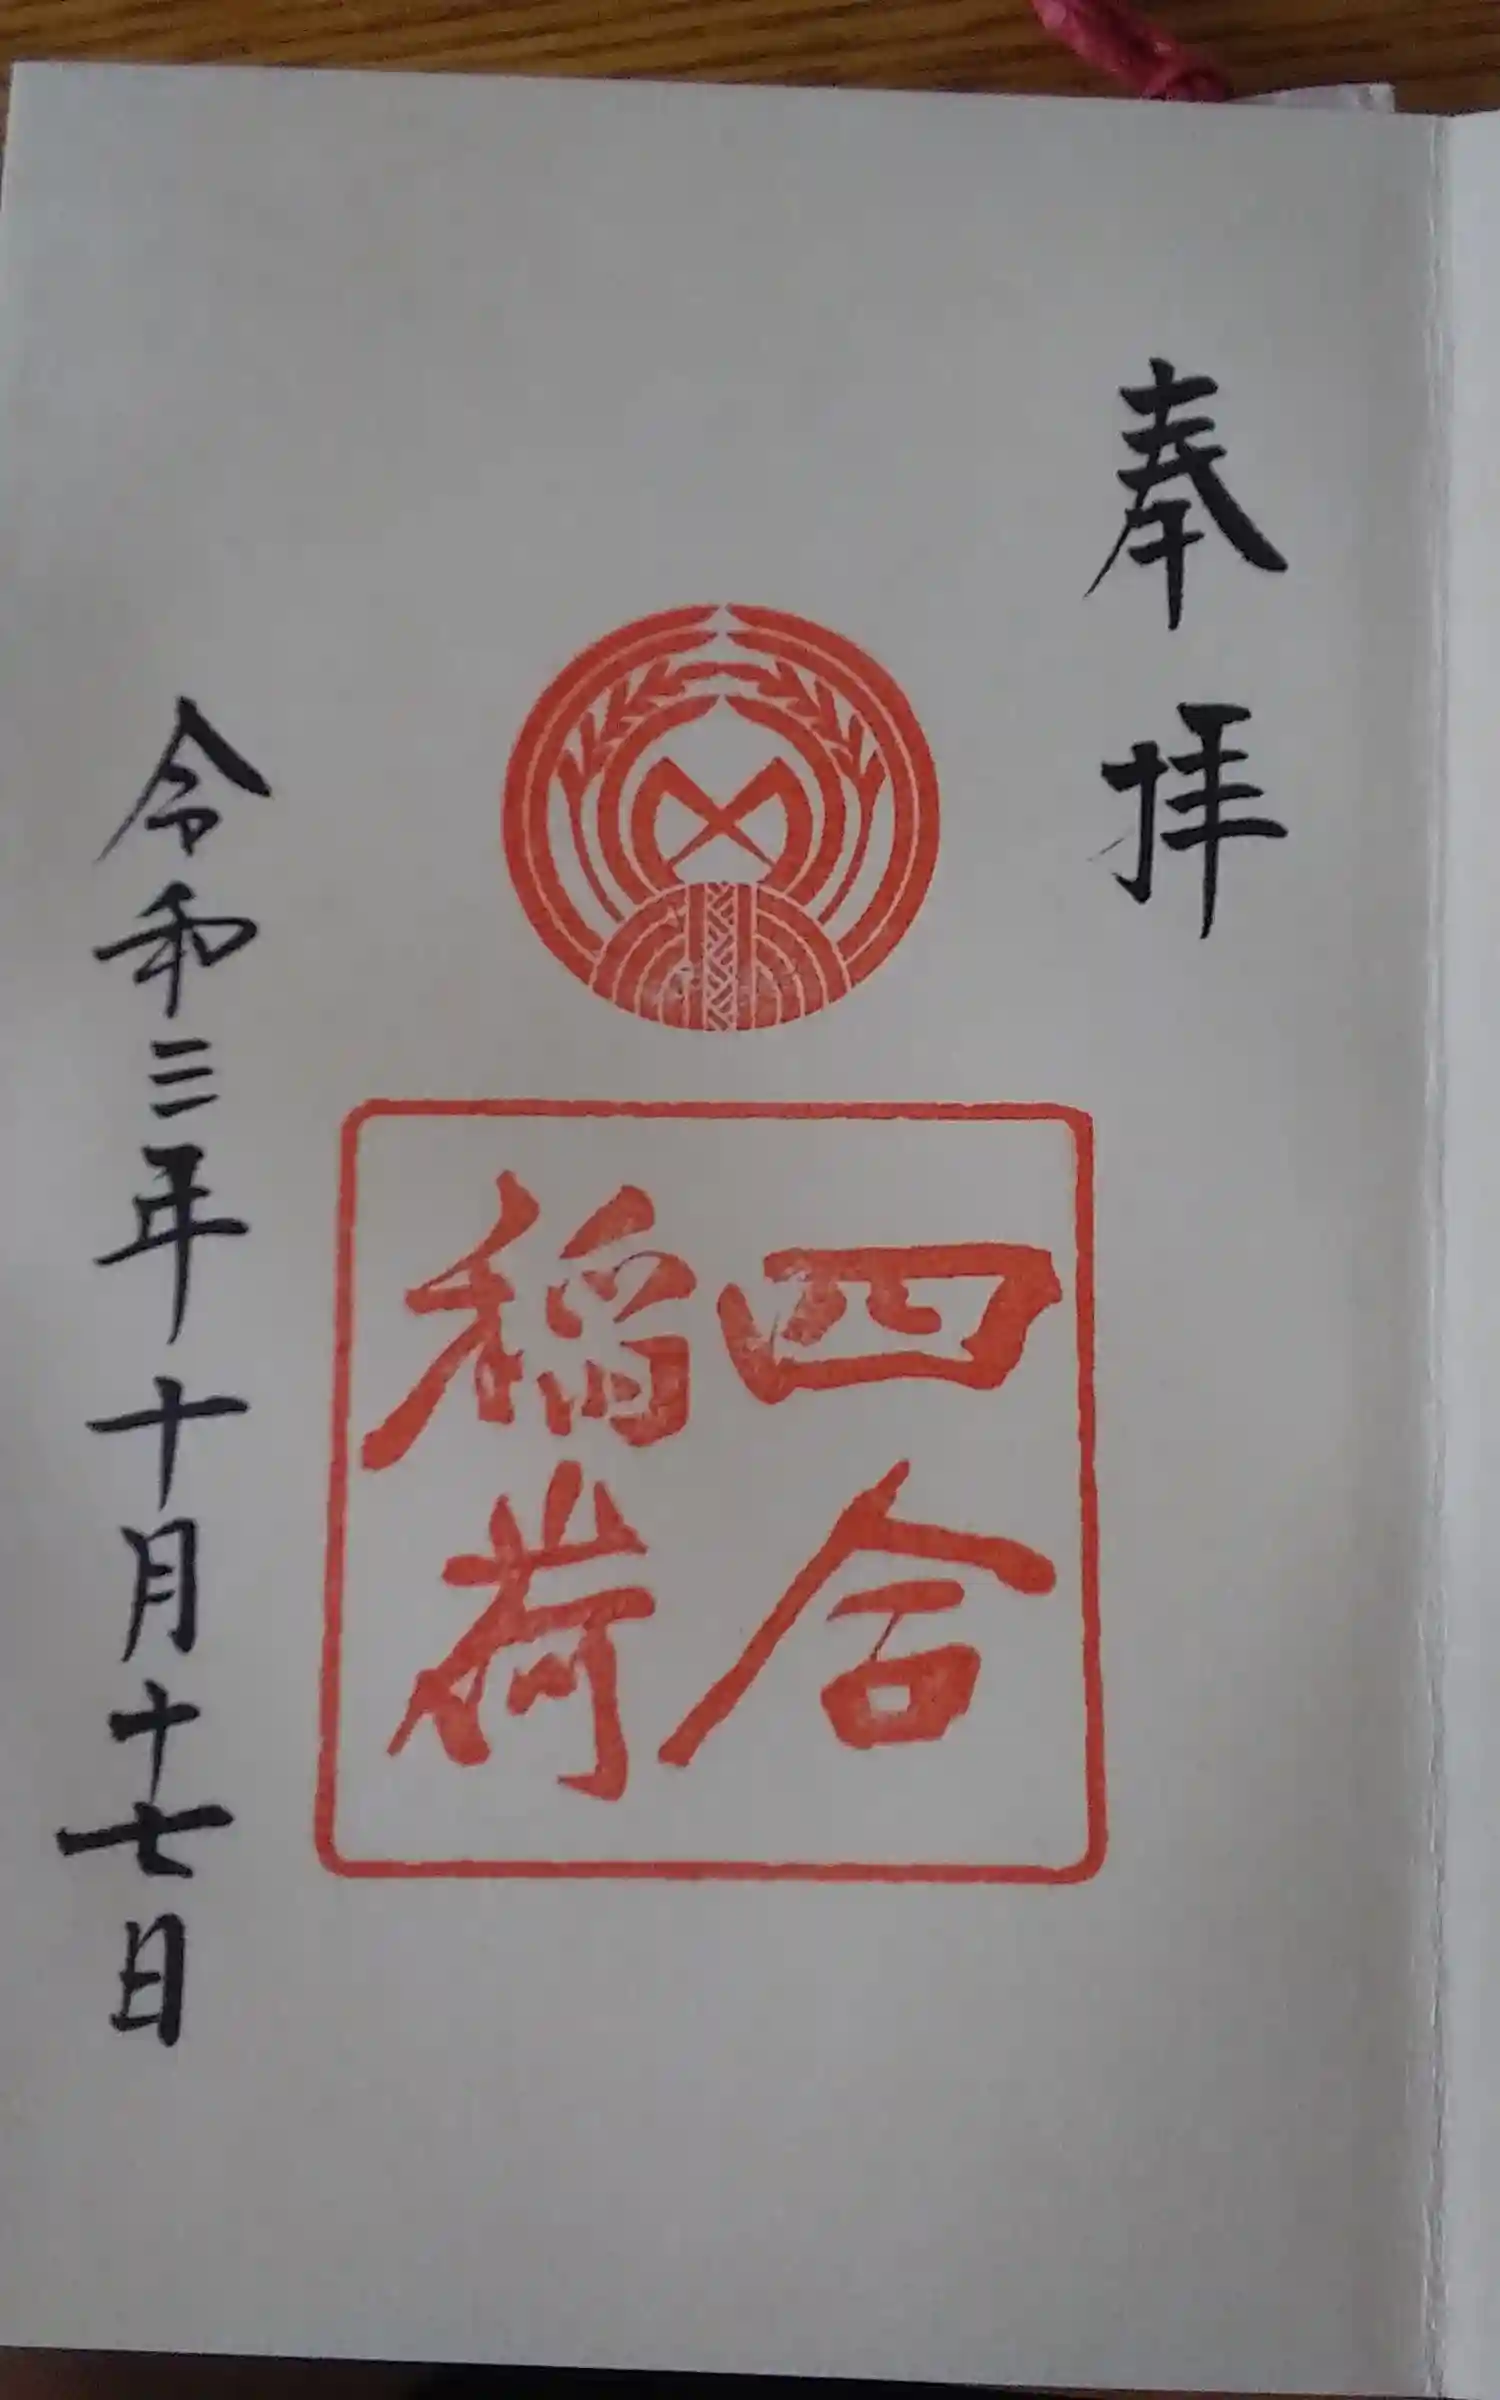 奉拝
四合
稲荷
令和三年十月十七日